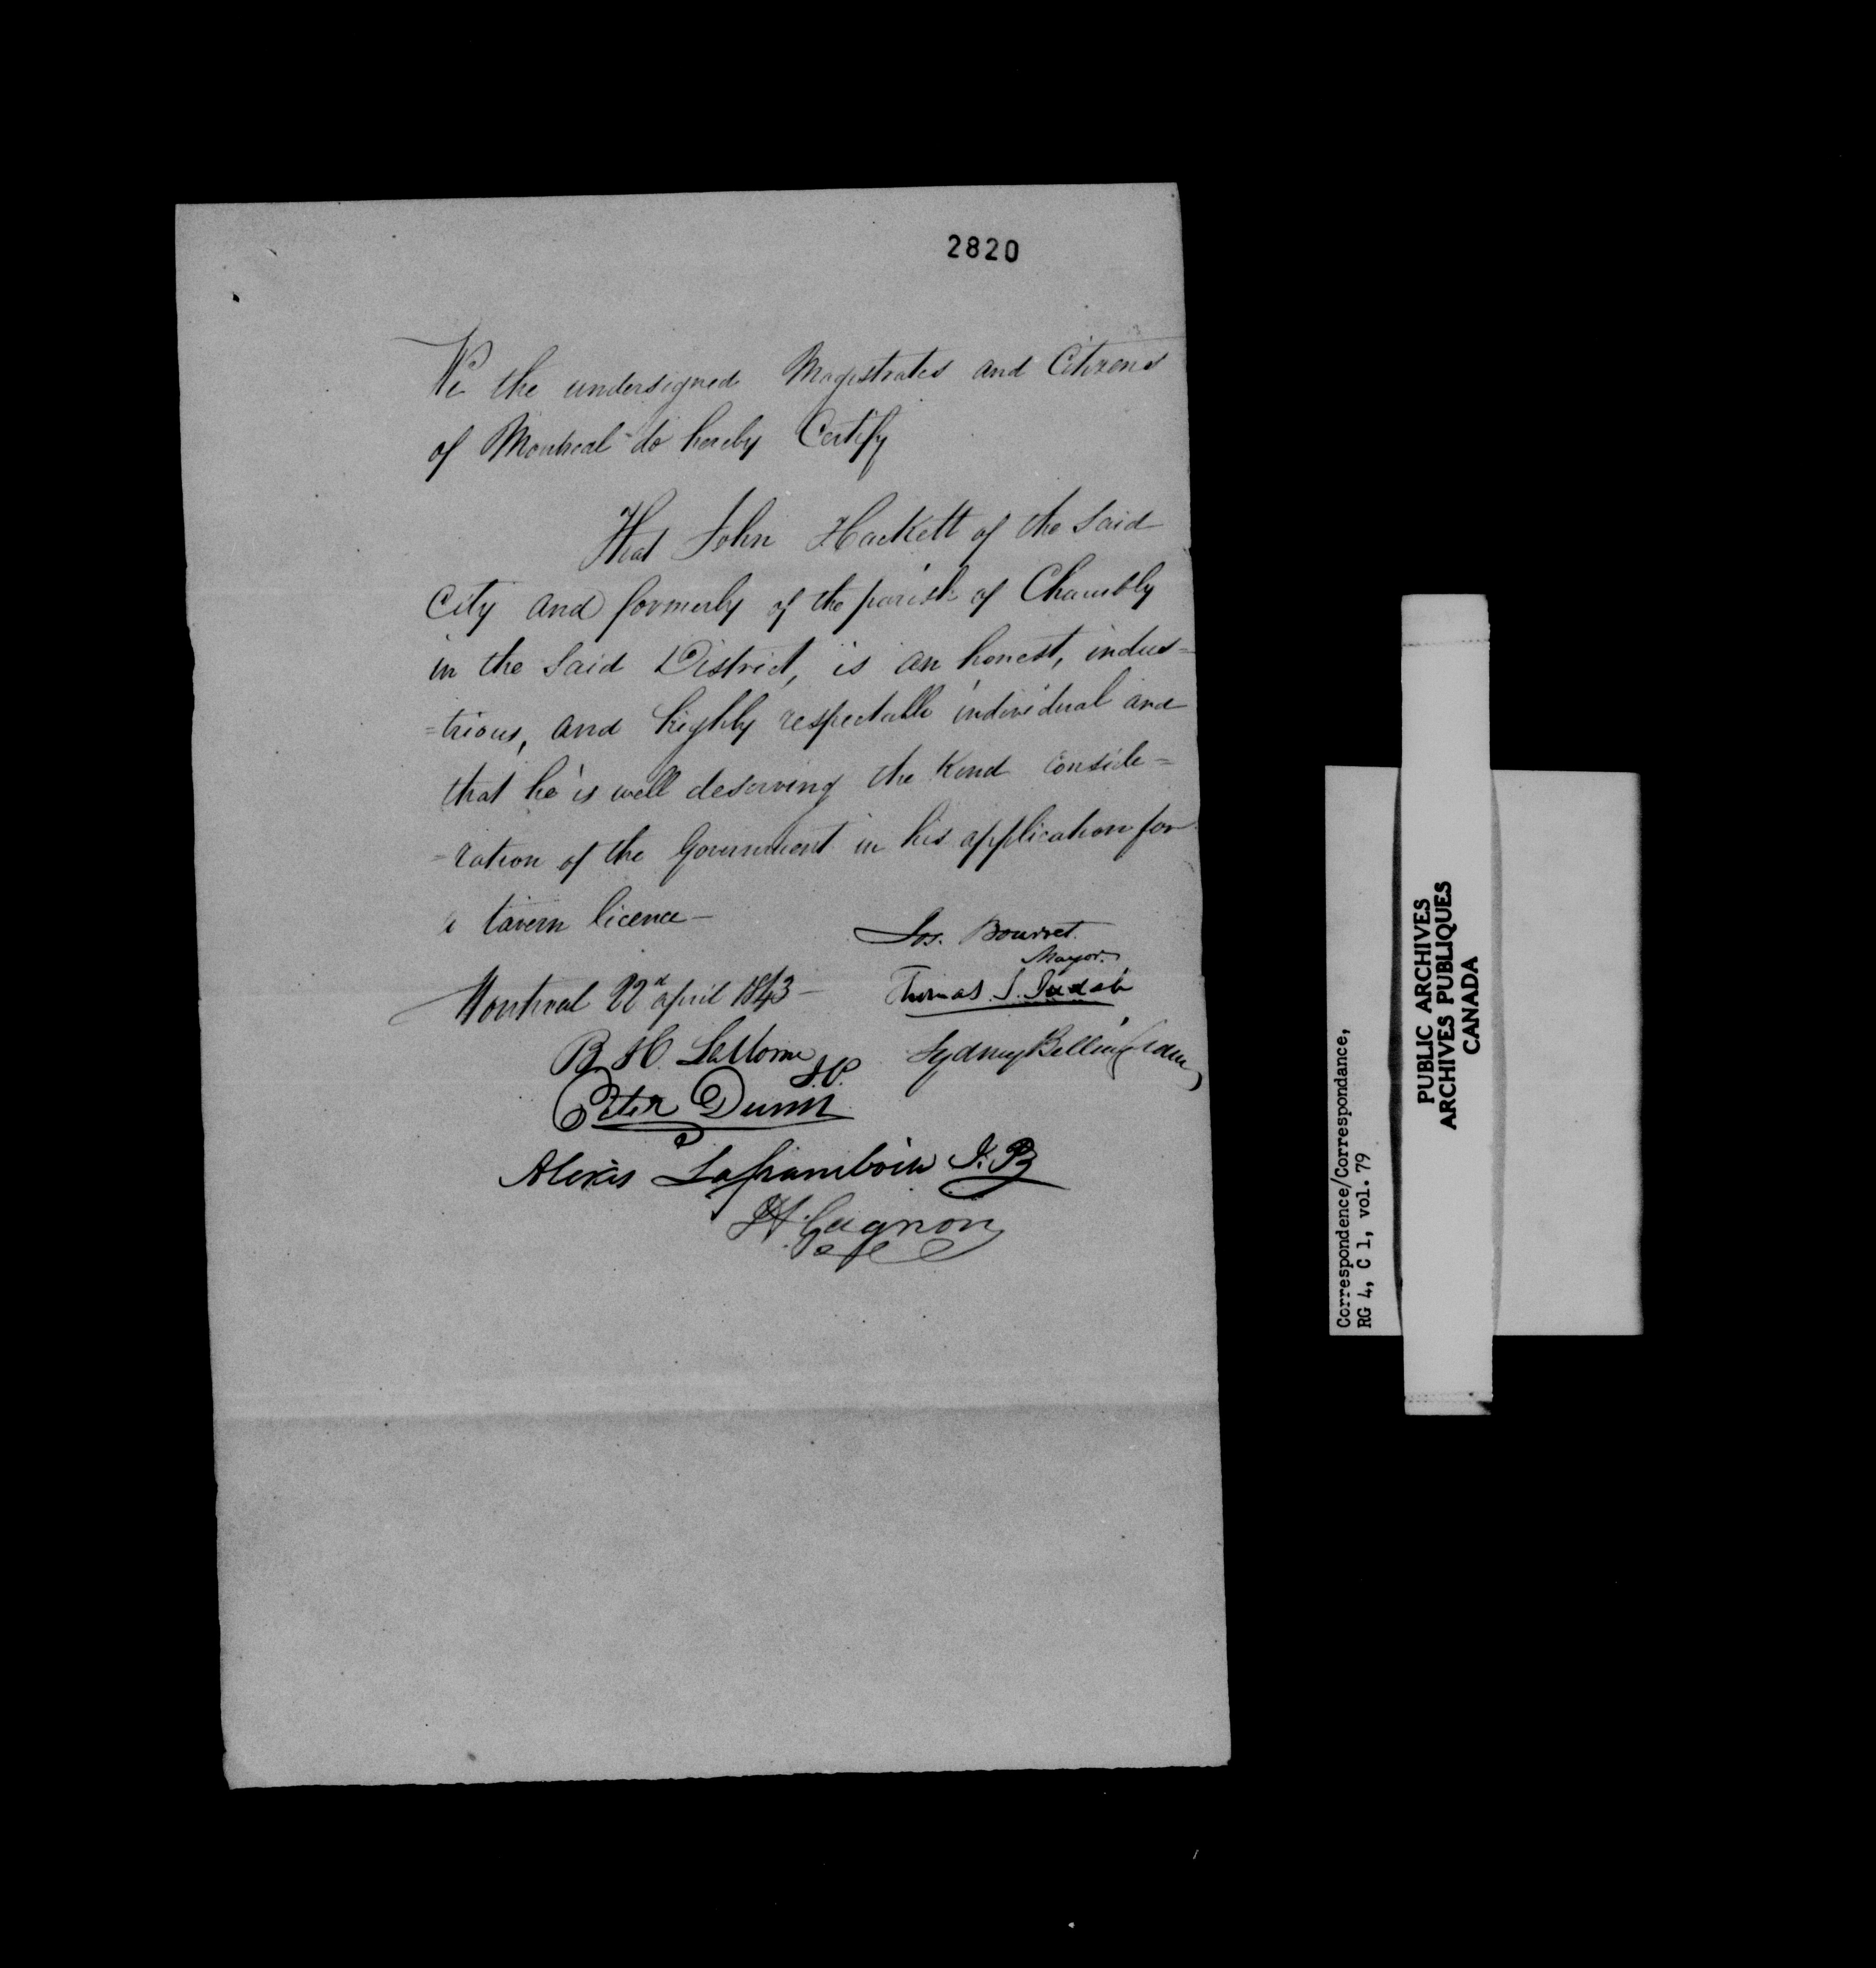 2820
We the undersigned Magistrates and Citizens
of Montreal do hereby Certify
That John Hackett of the Said
City and formerly of the parish of Chambly
in the Said District, is an honest, indus=
=trious, and highly respectable individual and
that he is well deserving the Kind conside=
=ration of the Government in his application for
a tavern licence—
Jos. Bourret.
Mayor.
Montreal 22d april 1843—
Thomas S. Judah
B H LeMoine
J.P.
Sydney Bellingham
Peter Dunn
Alexis Laframboise J.P
H. Gagnon
Correspondence/Correspondance,
RG 4, C 1, vol. 79
PUBLIC ARCHIVES
ARCHIVES PUBLIQUES
CANADA